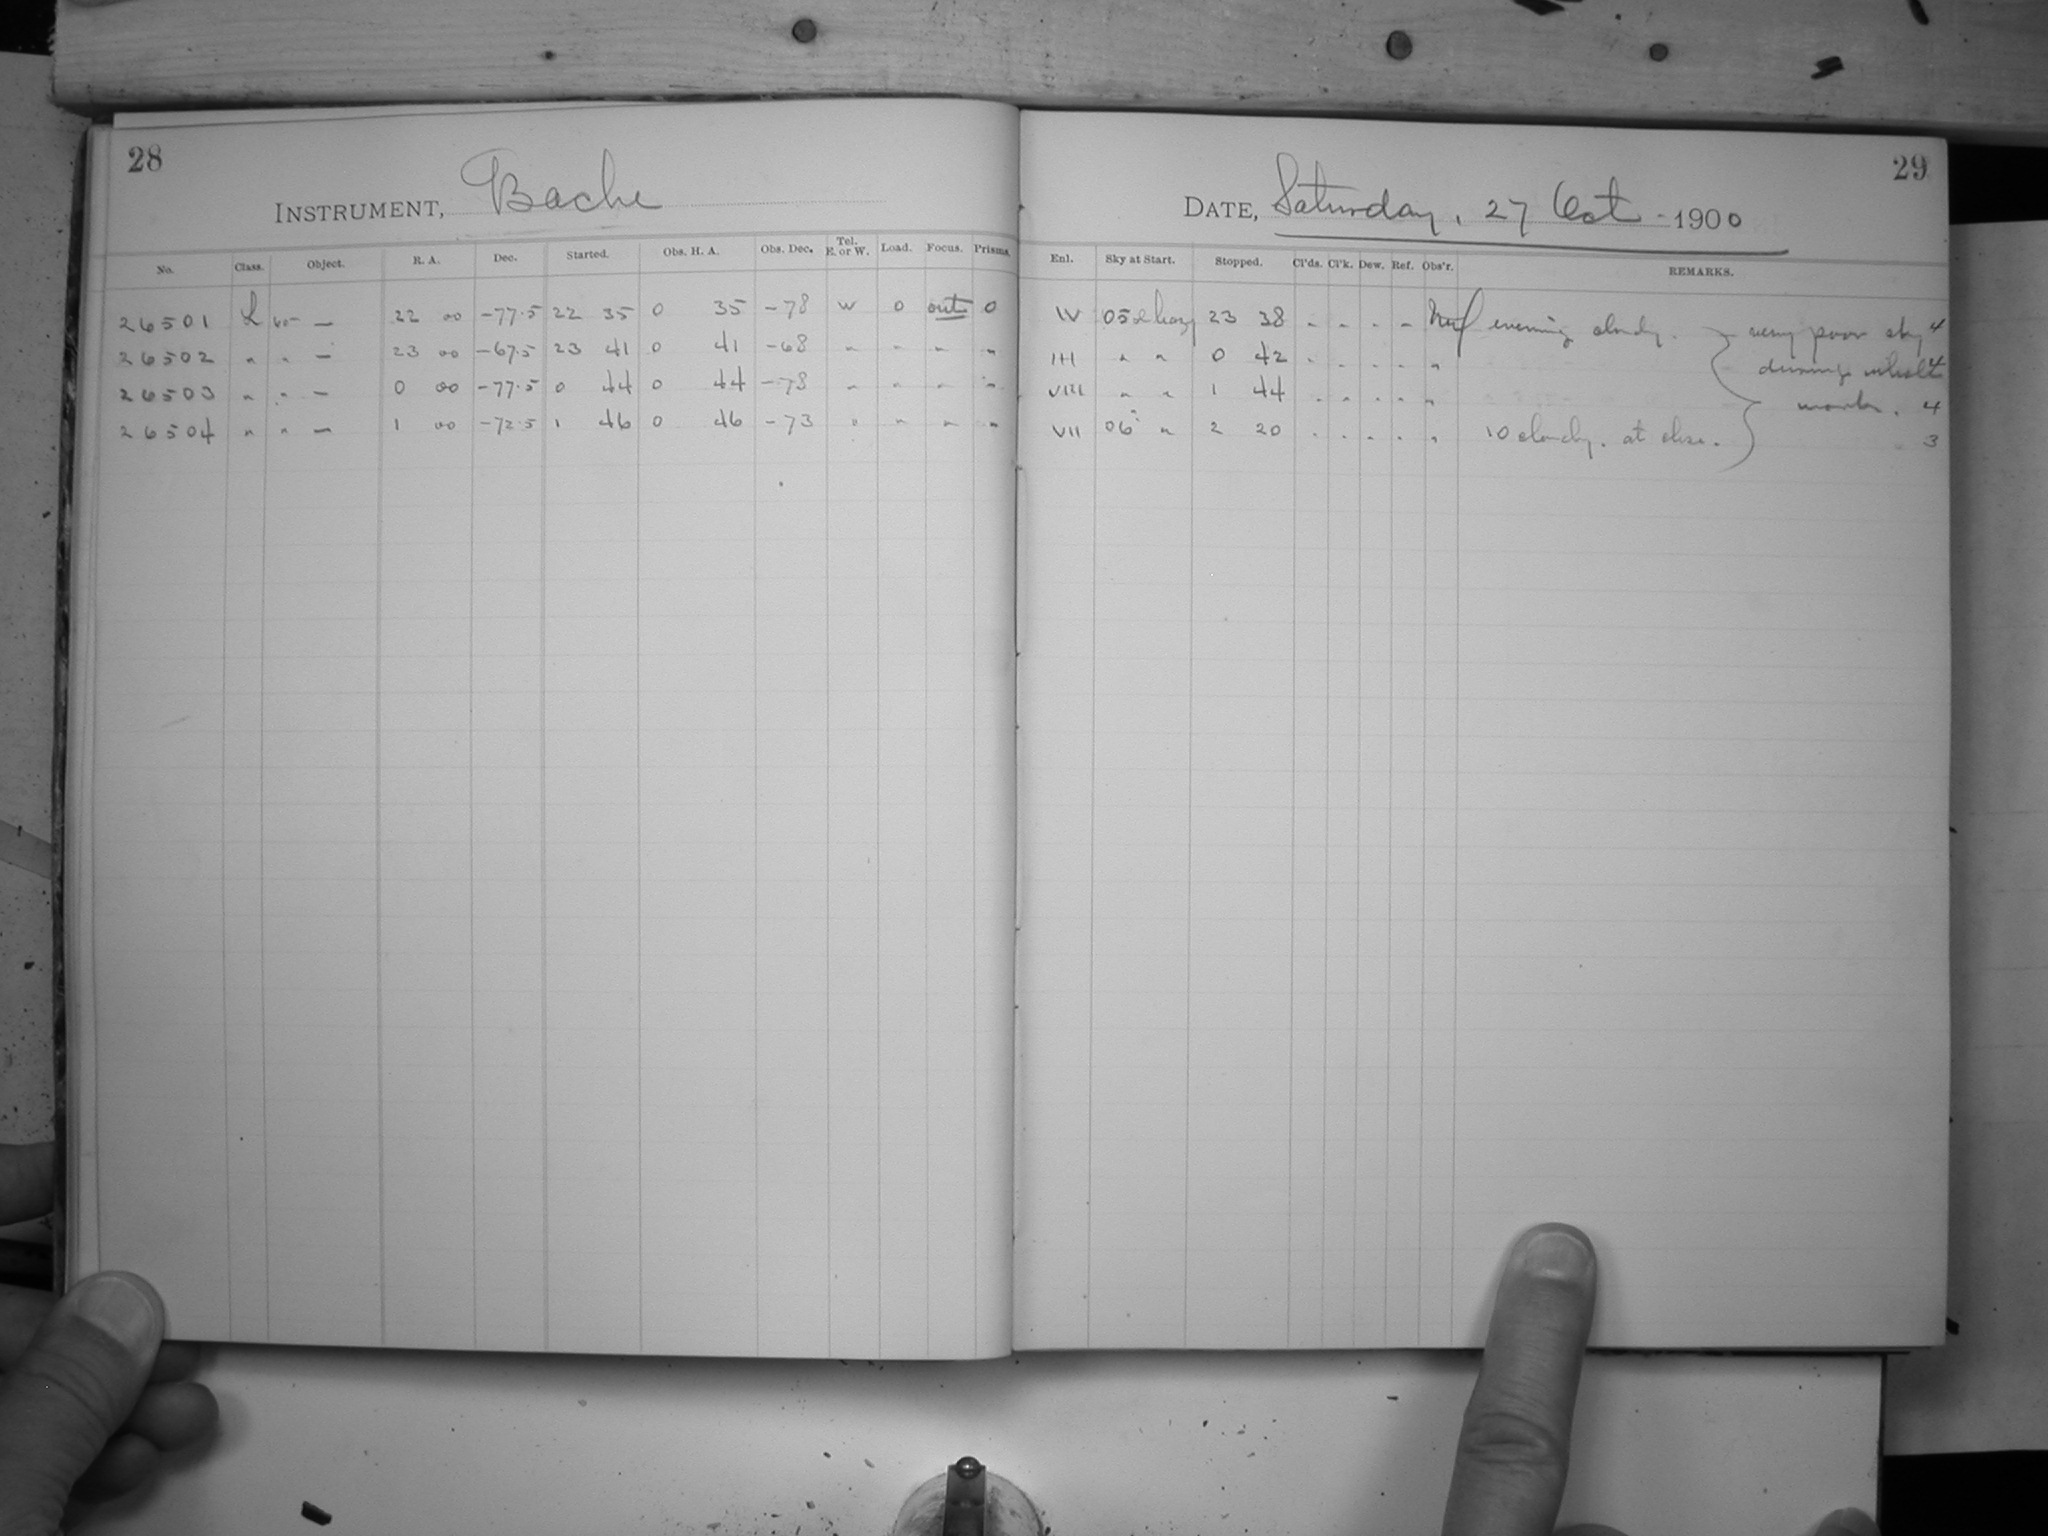 28
INSTRUMENT, Bache
No. Class. Object. R. A. Dec. Started. Obs. H. A. Obs. Dec. Tel. E. or W. Load. Focus. Prisms.
26501 L 60- — 22 00 -77.5 22 35 0 35 -78 W 0 out 0
26502 " " — 23 00 -67.5 23 41 0 41 -68 " " " "
26503 " " — 0 00 -77.5 0 44 0 44 -78 " " " "
26504 " " — 1 00 -72.5 1 46 0 46 -73 " " " "
29
DATE, Saturday, 27 Oct - 1900
Enl. Sky at Start. Stopped. Cl'ds. Cl'k. Dew. Ref. Obs'r. REMARKS.
IV 05 hazy 23 38 - - - - evening cloudy. very poor sky 4
III " " 0 42 - - - - " during whole 4
VIII " " 1 44 - - - - " work. 4
VII 06 " 2 20 - - - - " 10 cloudy. at close. 3